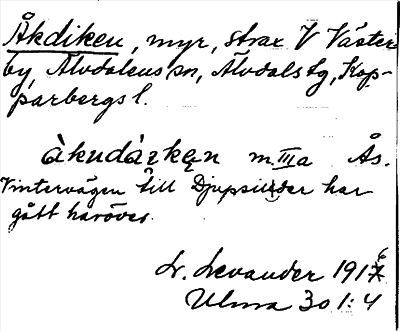 Åkdiken, myr, strax V Väster-
by, Älvdalens sn, Älvdals tg, Kop-
parbergs l.
åkudàrkęn m.IIIa Ås.
Vintervägen till Djupsiljer har
gått häröver.
L. Levander 1916
Ulma 30 1:4